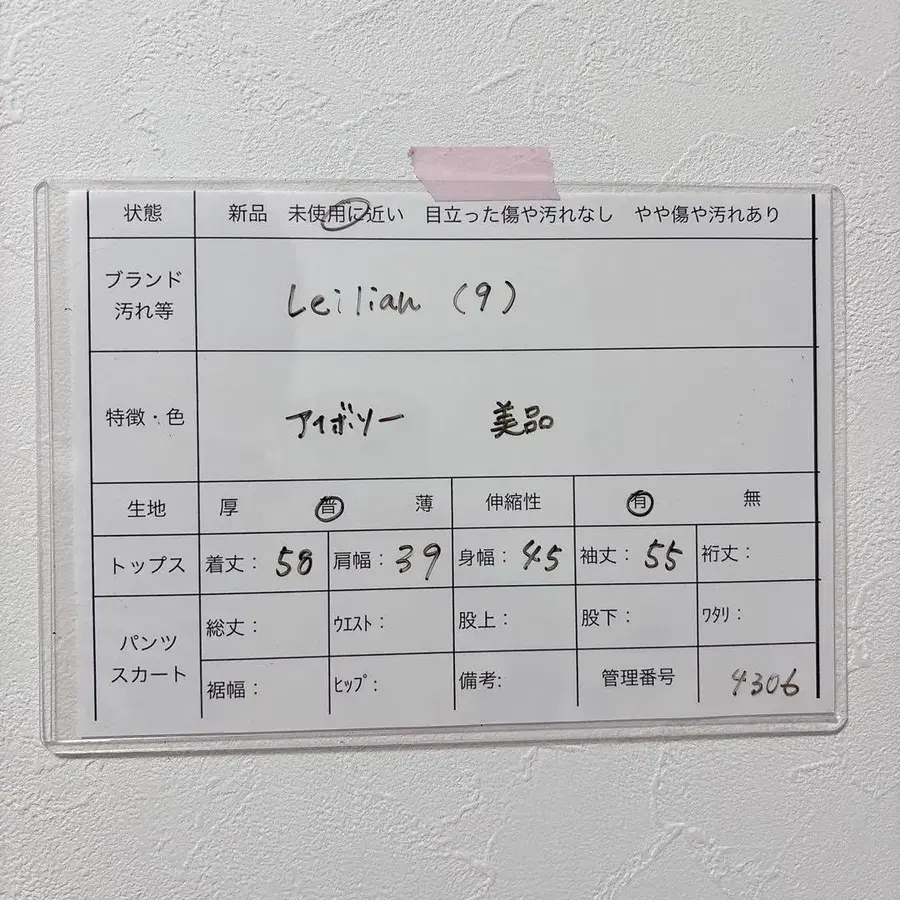 状態 新品 未使用に近い 目立った傷や汚れなし やや傷や汚れあり
ブランド
汚れ等
Leilian (9)
特徴・色 アイボリー 美品
生地 厚 普 薄 伸縮性 有 無
トップス 着丈: 58 肩幅: 39 身幅: 45 袖丈: 55 裄丈:
パンツ
スカート
総丈: ウエスト: 股上: 股下: ワタリ:
裾幅: ヒップ: 備考: 管理番号 4306